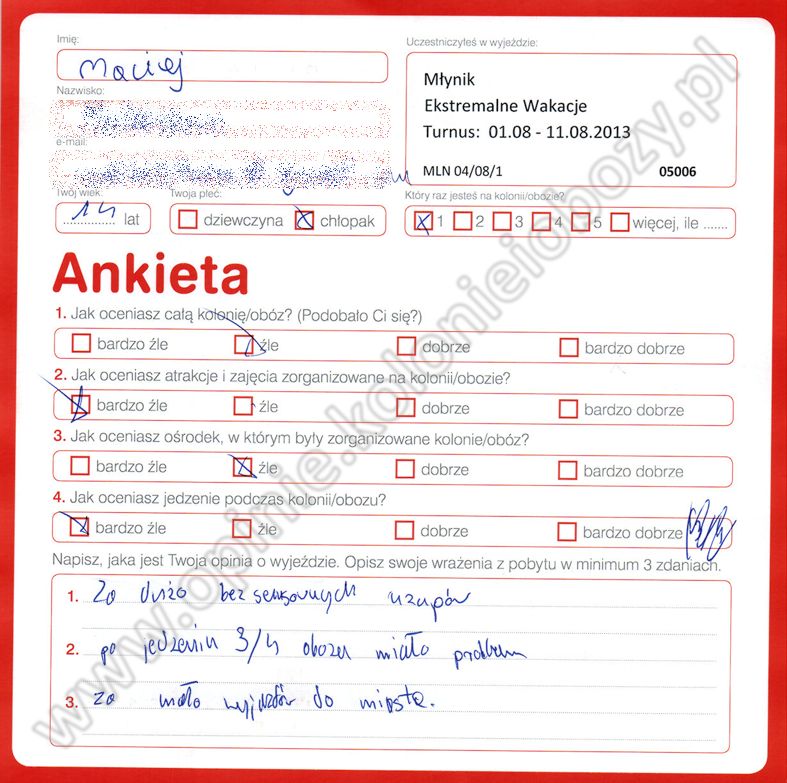 Imię:
Maciej
Nazwisko:
e-mail:
Twój wiek:
14 lat
Twoja płeć:
dziewczyna chłopak
Uczestniczyłeś w wyjeździe:
Młynik
Ekstremalne Wakacje
Turnus: 01.08 - 11.08.2013
MLN 04/08/1 05006
Który raz jesteś na kolonii/obozie?
1 2 3 4 5 więcej, ile .......
Ankieta
1. Jak oceniasz całą kolonię/obóz? (Podobało Ci się?)
bardzo źle źle dobrze bardzo dobrze
2. Jak oceniasz atrakcje i zajęcia zorganizowane na kolonii/obozie?
bardzo źle źle dobrze bardzo dobrze
3. Jak oceniasz ośrodek, w którym były zorganizowane kolonie/obóz?
bardzo źle źle dobrze bardzo dobrze
4. Jak oceniasz jedzenie podczas kolonii/obozu?
bardzo źle źle dobrze bardzo dobrze
Napisz, jaka jest Twoja opinia o wyjeździe. Opisz swoje wrażenia z pobytu w minimum 3 zdaniach.
1. Za dużo bezsensownych
2. po jedzeniu 3/4 obozu miało problem
3. za mało wyjazdów do miasta.
www.opinie.kolonieiobozy.pl